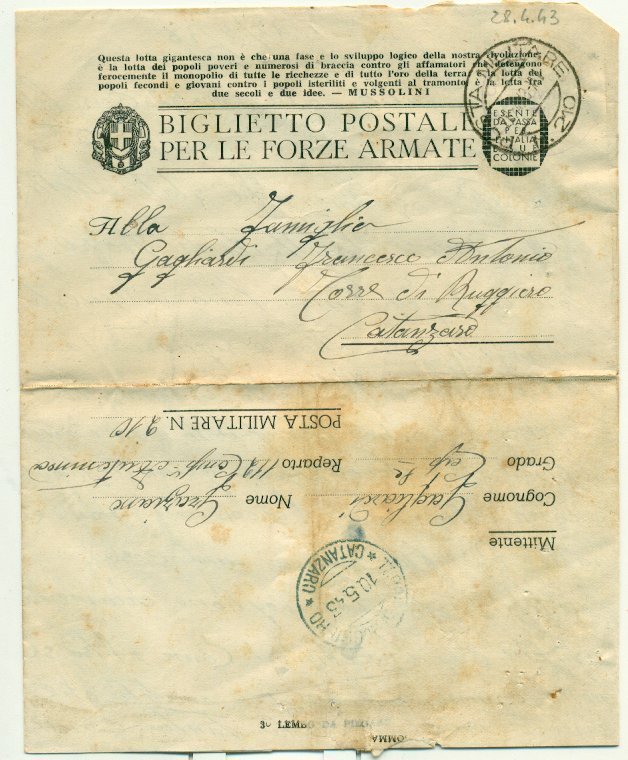 28.4.43
Questa lotta gigantesca non è che una fase e lo sviluppo logico della nostra rivoluzione;
è la lotta dei popoli poveri e numerosi di braccia contro gli affamatori che detengono
ferocemente il monopolio di tutte le ricchezze e di tutto l'oro della terra; è la lotta dei
popoli fecondi e giovani contro i popoli isteriliti e volgenti al tramonto; è la lotta tra
due secoli e due idee. — MUSSOLINI
POSTA MILITARE N. 210
BIGLIETTO POSTALE
PER LE FORZE ARMATE
ESENTE
DA TASSA
PER
L'ITALIA
COLONIE
Alla Famiglia
Gagliardi Francesco Antonio
Torre di Ruggiero
Catanzaro
Mittente
Cognome Gagliardi Nome Graziano
Grado Cap. le Reparto 112 Comp.
POSTA MILITARE N. 210
CATANZARO
10.5.43
3º LEMBO DA PIEGARE